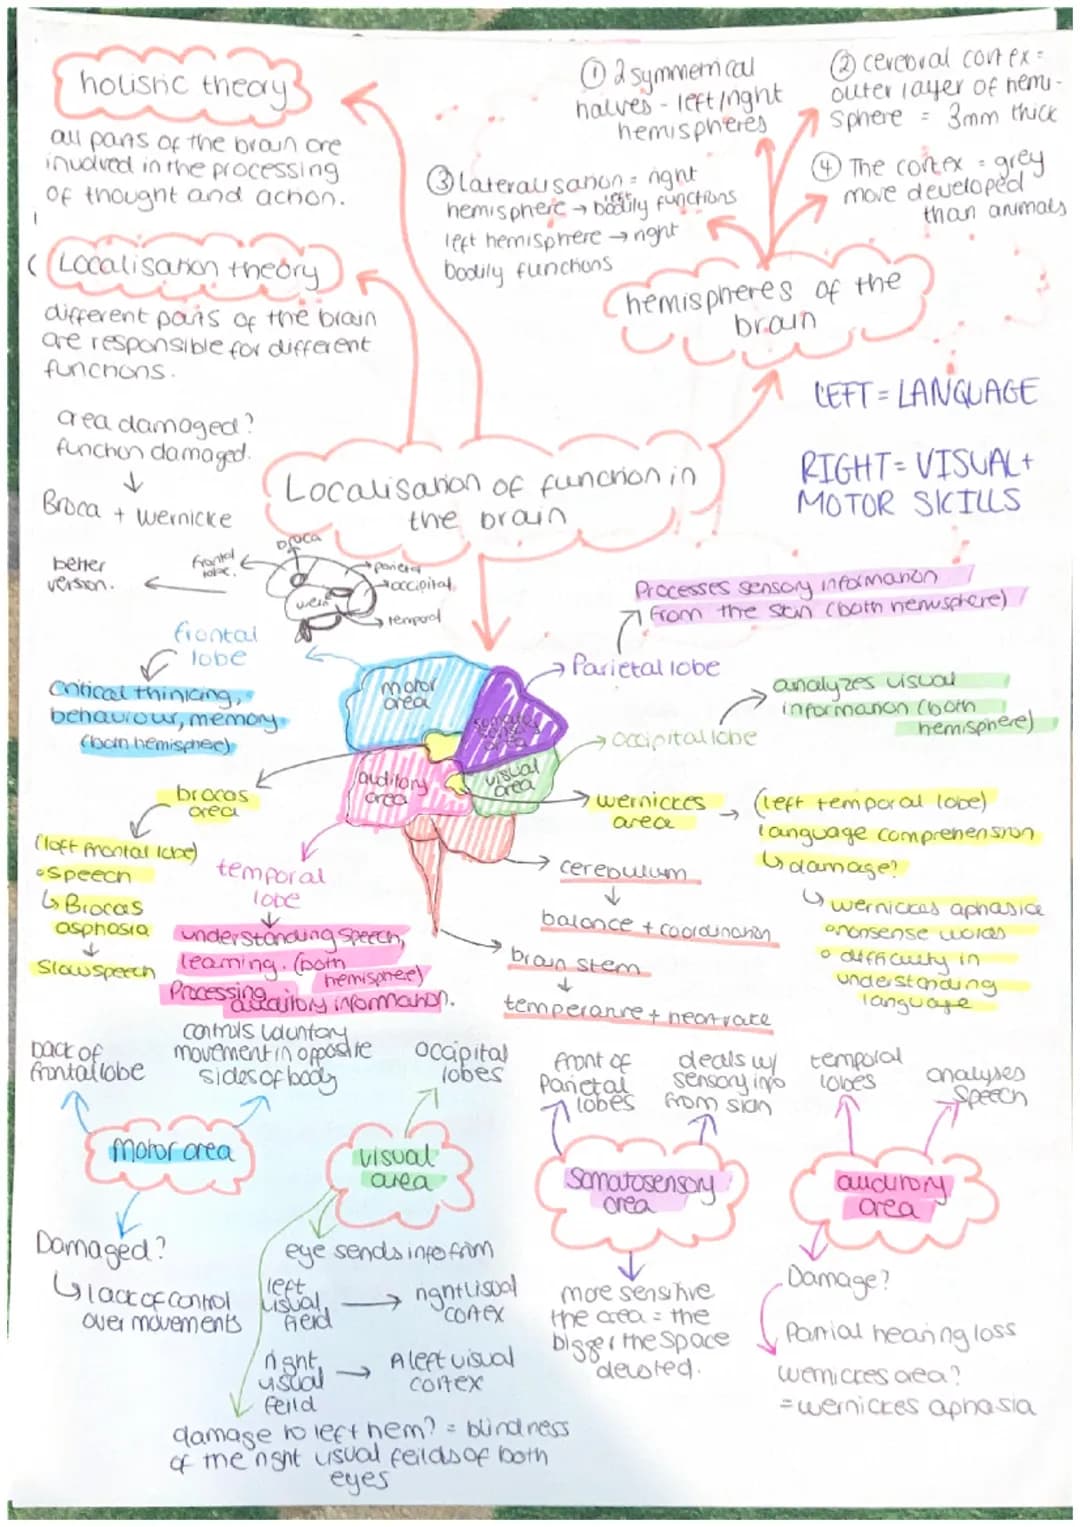 holistic theory
all parts of the brain are
involved in the processing
of thought and action.
Localisation theory
different parts of the brain
are responsible for different
functions.
area damaged?
function damaged.
Broca + Wernicke
① 2 symmetrical
halves - left/right
hemispheres
② cerebral cortex =
outer layer of hemi-
sphere = 3mm thick
③ Lateralisation = right
hemisphere → left bodily functions
left hemisphere → right
bodily functions
④ The cortex = grey
more developed
than animals
hemispheres of the
brain
LEFT = LANGUAGE
RIGHT = VISUAL +
MOTOR SKILLS
Localisation of function in
the brain
better
version.
frontal
lobe.
broca
parietal
occipital
wern
temporal
Processes sensory information
from the skin (both hemisphere)
Parietal lobe
frontal
lobe
Critical thinking,
behaviour, memory
(both hemisphere)
motor
area
auditory
area
visual
area
analyzes visual
information (both
hemisphere)
occipital lobe
brocas
area
(left frontal lobe)
•speech
↳ Brocas
asphasia
slow speech
temporal
lobe
understanding speech,
learning. (both
hemisphere)
Processing
auditory information.
wernickes
area
→ (left temporal lobe)
language comprehension
↳ damage?
↳ wernickes aphasia
•nonsense words
• difficulty in
understanding
language
cerebulum
balance + coordination
brain stem
temperature + heart rate
back of
frontal lobe
controls voluntary
movement in opposite
sides of body
motor area
Damaged?
↳ lack of control
over movements
occipital
lobes
visual
area
eye sends info from
left
visual
field
→ right visual
cortex
right
visual
feild
→ A left visual
cortex
damage to left hem? = blindness
of the right visual feilds of both
eyes
front of
Parietal
lobes
deals w/
sensory info
from skin
somatosensory
area
more sensitive
the area = the
bigger the space
devoted.
temporal
lobes
analyses
speech
auditory
area
Damage?
Partial hearing loss
wernickes area?
= wernickes aphasia